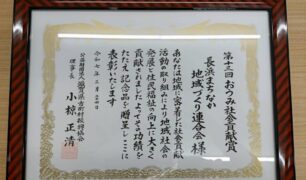 第十三回 おうみ社会貢献賞
長浜まちなか
地域づくり連合会 様
あなたは地域に密着した社会貢献
活動の取り組みにより地域社会の
発展と住民福祉の向上に大きく
貢献されましたよってその功績を
たたえ記念品を贈呈しここに
表彰いたします
令和七年三月
公益財団法人 滋賀県市町村振興協会
理事長 小椋正清